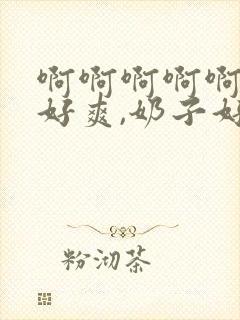 啊啊啊啊啊
好爽,奶子好
粉沏茶